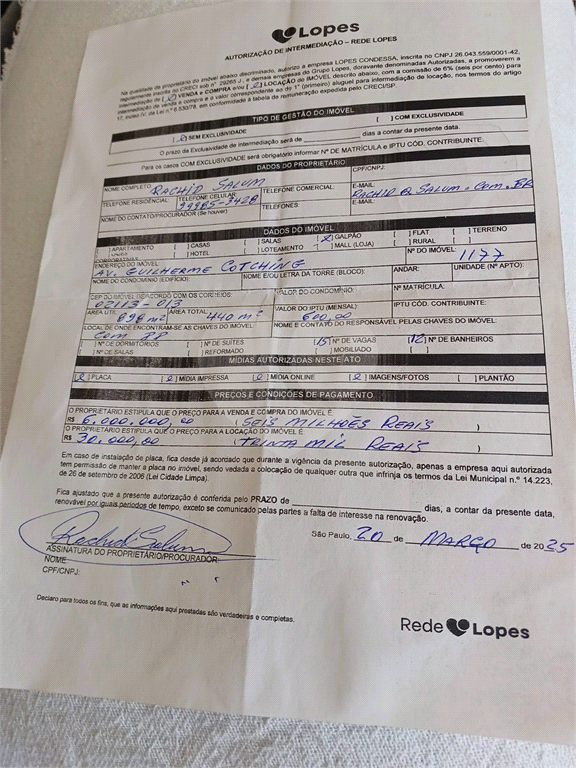 Lopes
AUTORIZAÇÃO DE INTERMEDIAÇÃO – REDE LOPES
Na qualidade de proprietária do imóvel abaixo discriminado, autorizo a empresa LOPES CONDESSA, inscrita no CNPJ 26.043.559/0001-42,
regularmente inscrita no CRECI sob nº 29265 J, e demais empresas do Grupo Lopes, doravante denominadas Autorizadas, a promoverem a
intermediação de VENDA e COMPRA e/ou LOCAÇÃO do IMÓVEL descrito abaixo, com a comissão de 6% (seis por cento) para
intermediação de venda e compra e o valor correspondente ao 1º (primeiro) aluguel para intermediação de locação, nos termos do artigo
17, inciso IV, da Lei n.º 6.530/78, em conformidade à tabela de remuneração expedida pelo CRECI/SP.
TIPO DE GESTÃO DO IMÓVEL
SEM EXCLUSIVIDADE [ ] COM EXCLUSIVIDADE
O prazo da Exclusividade de intermediação será de dias a contar da presente data.
Para os casos COM EXCLUSIVIDADE será obrigatório informar Nº DE MATRÍCULA e IPTU CÓD. CONTRIBUINTE.
DADOS DO PROPRIETÁRIO
NOME COMPLETO RACHID SALUM CPF/CNPJ:
TELEFONE RESIDENCIAL TELEFONE CELULAR: 99985-3428 TELEFONE COMERCIAL E-MAIL: RACHID@SALUM.COM.BR
NOME DO CONTATO/PROCURADOR (Se houver) TELEFONES E-MAIL
DADOS DO IMÓVEL
[ ] APARTAMENTO [ ] CASAS [ ] SALAS [X] GALPÃO [ ] FLAT [ ] TERRENO
CORPORATIVOS [ ] HOTEL LOTEAMENTO [ ] MALL (LOJA) [ ] RURAL [ ]
ENDEREÇO DO IMÓVEL AV. GUILHERME COTCHING Nº DO IMÓVEL: 1177
NOME DO CONDOMÍNIO (EDIFÍCIO): NOME E/OU LETRA DA TORRE (BLOCO): ANDAR: UNIDADE (Nº APTO):
CEP DO IMÓVEL DE ACORDO COM OS CORREIOS: 02113-013 VALOR DO CONDOMÍNIO: Nº MATRÍCULA:
ÁREA ÚTIL 896 m² ÁREA TOTAL: 440 m² VALOR DO IPTU (MENSAL) 600,00 IPTU CÓD. CONTRIBUINTE:
LOCAL DE ONDE ENCONTRAM-SE AS CHAVES DO IMÓVEL: COM PP NOME E CONTATO DO RESPONSÁVEL PELAS CHAVES DO IMÓVEL:
[ ] Nº DE DORMITÓRIOS [ ] Nº DE SUÍTES [15] Nº DE VAGAS [12] Nº DE BANHEIROS
[ ] Nº DE SALAS [ ] REFORMADO [ ] MOBILIADO [ ]
MÍDIAS AUTORIZADAS NESTE ATO
PLACA MÍDIA IMPRESSA MÍDIA ONLINE IMAGENS/FOTOS [ ] PLANTÃO
PREÇOS E CONDIÇÕES DE PAGAMENTO
O PROPRIETÁRIO ESTIPULA QUE O PREÇO PARA A VENDA E COMPRA DO IMÓVEL É
R$ 6.000.000,00 (SEIS MILHÕES REAIS)
O PROPRIETÁRIO ESTIPULA QUE O PREÇO PARA A LOCAÇÃO DO IMÓVEL É
R$ 30.000,00 (TRINTA MIL REAIS)
Em caso de instalação de placa, fica desde já acordado que durante a vigência da presente autorização, apenas a empresa aqui autorizada
tem permissão de manter a placa no imóvel, sendo vedada a colocação de qualquer outra que infrinja os termos da Lei Municipal n.º 14.223,
de 26 de setembro de 2006 (Lei Cidade Limpa).
Fica ajustado que a presente autorização é conferida pelo PRAZO de dias, a contar da presente data,
renovável por iguais períodos de tempo, exceto se comunicado pelas partes a falta de interesse na renovação.
São Paulo, 20 de MARÇO de 2025
Rachid Salum
ASSINATURA DO PROPRIETÁRIO/PROCURADOR:
NOME
CPF/CNPJ:
Declaro para todos os fins, que as informações aqui prestadas são verdadeiras e completas.
Rede Lopes